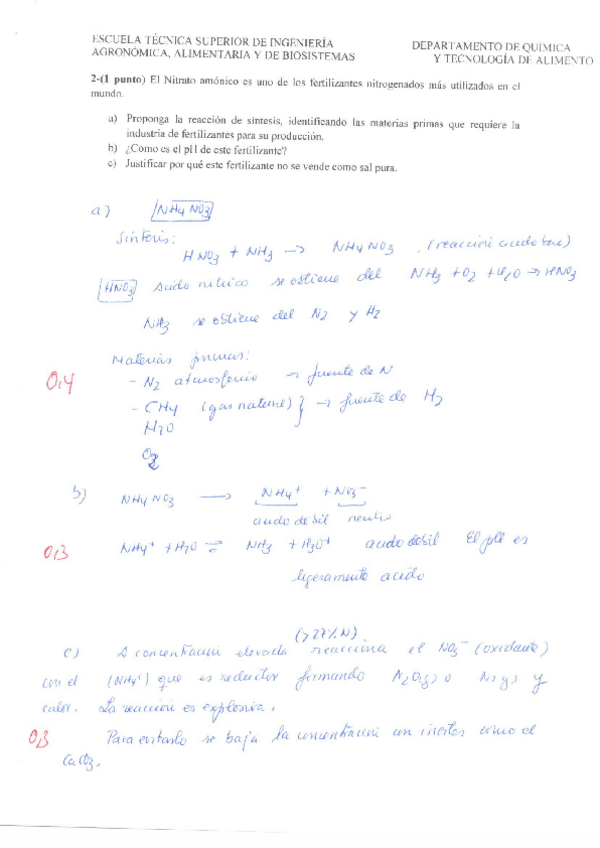 ESCUELA TÉCNICA SUPERIOR DE INGENIERÍA
AGRONÓMICA, ALIMENTARIA Y DE BIOSISTEMAS
DEPARTAMENTO DE QUIMICA
Y TECNOLOGÍA DE ALIMENTO
2-(1 punto) El Nitrato amónico es uno de los fertilizantes nitrogenados más utilizados en el
mundo.
a) Proponga la reacción de síntesis, identificando las materias primas que requiere la
industria de fertilizantes para su producción.
b) ¿Como es el pH de este fertilizante?
c) Justificar por qué este fertilizante no se vende como sal pura.
a) NH4NO3
Síntesis:
HNO3 + NH3 → NH4NO3 (reacción acido base)
HNO3 acido nitrico se obtiene del NH3 + O2 + H2O → HNO3
NH3 se obtiene del N2 y H2
Materias primas:
0,4
- N2 atmosferico → fuente de N
- CH4 (gas natural) } → fuente de H2
H2O
O2
b) NH4NO3 → NH4+ + NO3-
acido debil neutro
0,3
NH4+ + H2O ⇌ NH3 + H3O+ acido debil El pH es
ligeramente acido
(>27% N)
c) A concentracion elevada reacciona el NO3- (oxidante)
con el (NH4+) que es reductor formando N2O(g) o N2(g) y
calor. La reaccion es explosiva.
0,3
Para evitarlo se baja la concentracion con inertes como el
CaCO3.